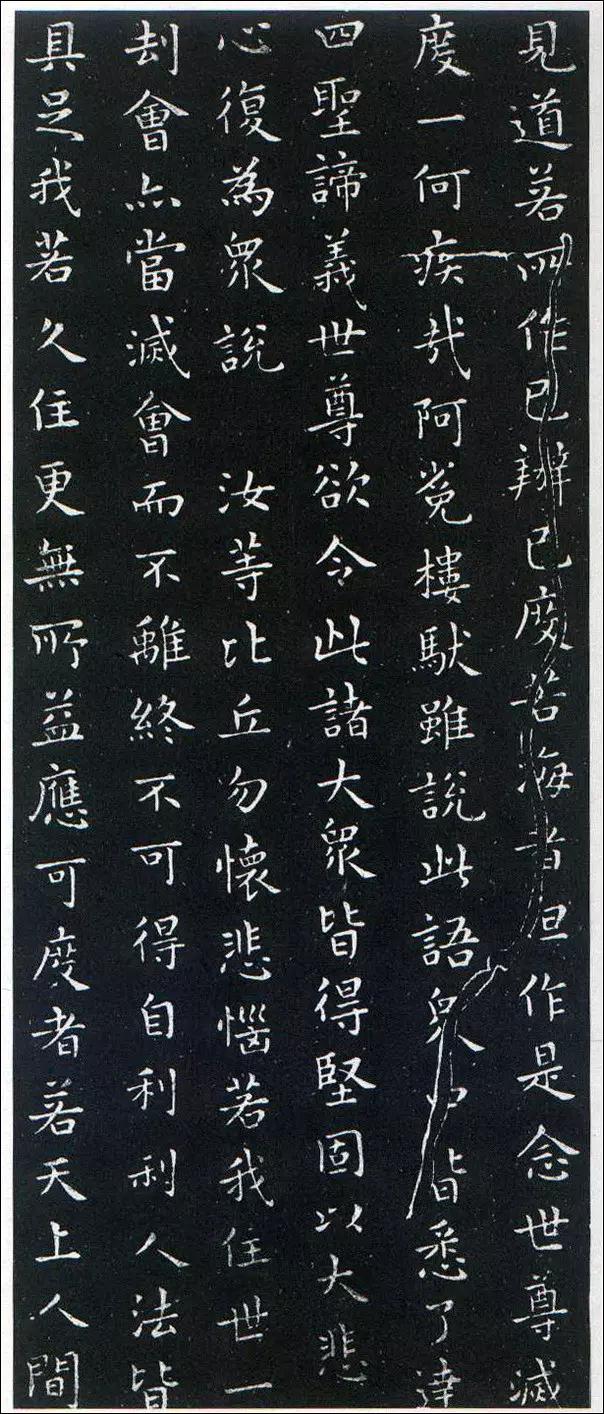 見道若所作已辦已度苦海者但作是念世尊滅
度一何疾哉阿㝹樓馱雖說此語眾中皆悉了達
四聖諦義世尊欲令此諸大眾皆得堅固以大悲
心復為眾說　汝等比丘勿懷悲惱若我住世一
劫會亦當滅會而不離終不可得自利利人法皆
具足我若久住更無所益應可度者若天上人間